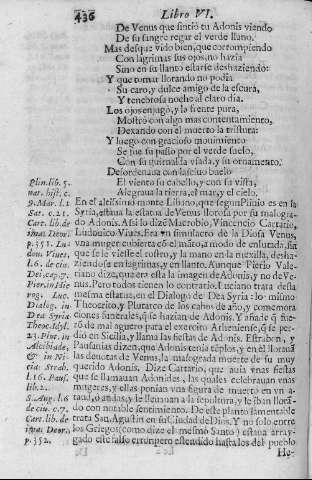 436 Libro VI.
De Venus que sintiò tu Adonis viendo
De su sangre regar el verde llano.
Mas desque vido bien, que corrompiendo
Con lagrimas sus ojos, no hazia
Sino en su llanto estarse deshaziendo:
Y que tornar llorando no podia
Su caro, y dulce amigo de la escura,
Y tenebrosa noche al claro dia.
Los ojos enjugò, y la frente pura,
Mostrò con algo mas contentamiento,
Dexando con el muerto la tristura:
Y luego con gracioso mouimiento
Se fue su passo por el verde suelo,
Con su guirnalda vsada, y su ornamento.
Desordenaua con lasciuo buelo
El viento su cabello, y con su vista,
Alegraua la tierra, el mar, y el cielo.
En el altissimo monte Libano, que segun Plinio es en la
Syria, estaua la estatua de Venus llorosa por su malogra-
do Adonis. Assi lo dizē Macrobio, Vincencio Cartario,
Ludouico Viues. Era vn simulacro de la Diosa Venus,
vna muger cubierta cō el māto, a modo de enlutada, sin
que se le viesse el rostro, y la mano en la mexilla, desha-
ziendose en lagrimas, y en llanto. Aunque Pierio Vale-
riano dize, que era esta la imagen de Adonis, y no de Ve-
nus. Pero todos tienen lo contrario. Luciano trata desta
misma estatua, en el Dialogo de Dea Syria: lo mismo
Theocrito, y Plutarco de los cabos de año, y comemora
ciones funerales, q̄ se hazian de Adonis. Y añade q̄ fue-
ro de mal aguero para el exercito Atheniense, q̄ se per-
diò en Sicilia, y llama las fiestas de Adonis. Estrabon, y
Pausanias dizen, que Adonis tenia tēplos, y en el lloraua
las deuotas de Venus, la malograda muerte de su muy
querido Adonis. Dize Cartario, que auia vnas fiestas
que se llamauan Adonides, las quales celebrauan vnas
mugeres, y ellas ponian vna figura de muerto en vn a-
taud, o andas, y le lleuauan a la sepultura, y le iban lloran
do con notable sentimiento. De este planto lamentable
trata San Agustin en su Ciudad de Dios. Y no solo entre
los Griegos (como dize el mesmo Santo) estaua array-
gado este falso error, pero estendido hasta los del pueblo
He-
Plin. lib. 5.
nat. hist. c.
p. Mar. l. 1
Sat. c. 21.
Cart. lib. de
imag. Deor.
p. 351. Lu-
don. Viues,
l. 6. de ciu.
Dei, cap. 7.
Pier. in Hie
rog. Luc.
Dialog. in
Dea Syria
Theoc. Idyl.
23. Plut. in
Alcibiade,
& in Ni-
cia: Strab.
l. 16. Paus.
lib. 2.
S. Aug. l. 6
de ciu. c. 7.
Cart. lib. de
imag. Deor.
p. 352.